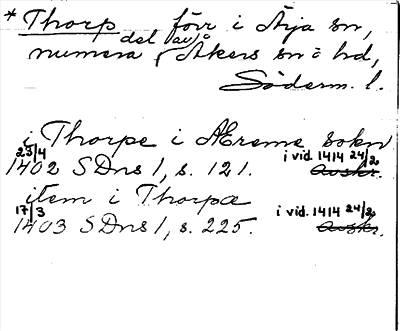 * Thorp, förr i Ärja sn,
numera del av Åkers sn o hd,
Söderm. l.
i Thorpe i Æræme sokn
23/4 1402 SDns 1, s. 121. i vid. 1414 24/2 Avskr.
item i Thorpæ
17/3 1403 SDns 1, s. 225. i vid. 1414 24/2 Avskr.